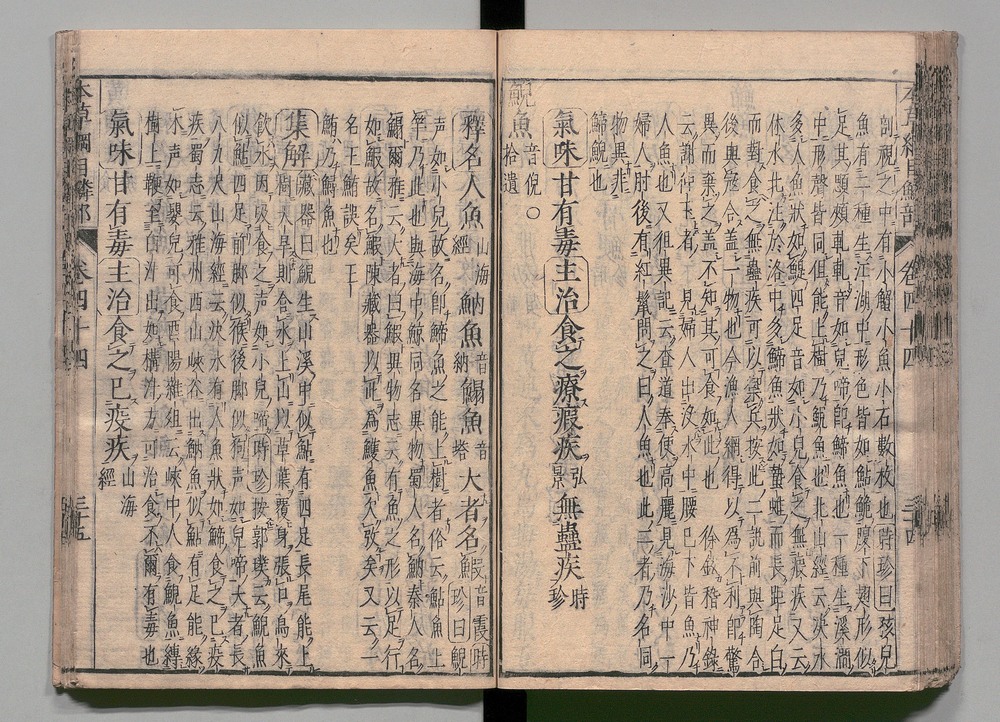 剖視之中有小蟹小魚小石數枚也時珍曰孩兒
魚有二種生江湖中形色皆如鮎鮠腮下翅形似
足其顋頰軋軋音如兒啼即鯑魚也一種生溪澗
中形聲皆同但能上樹乃鯢魚也北山經云決水
多人魚狀如鯷四足音如小兒食之無瘕疾又云
休水北注於洛中多鯑魚狀如蟄蜼而長距足白
而對食之無蠱疾可以禦兵按此二説前與陶合
後與寇合蓋一物也今漁人網得以為不利即驚
異而棄之蓋不知其可食如此也徐鉉稽神錄
云謝仲玉者見婦人出没水中腰已下皆魚乃
人魚也又徂異記云查道奉使高麗見海沙中一
婦人肘後有紅鬣問之曰人魚也此二者乃名同
物異非
鯑鯢也
氣味甘有毒主治食之療瘕疾弘景無蠱疾時珍
鯢魚音倪拾遺〇
釋名人魚山海經魶魚音納鰨魚音塔大者名鰕音霞時珍曰鯢
声如小兒故名即鯑魚之能上樹者俗云鮎魚上
竿乃此也與海中鯨同名異物蜀人名魶秦人名
鰨爾雅云大者曰鰕異物志云有魚之形以足行
如鰕故名鰕陳藏器以此為鱯魚欠攷矣又云一
名王鮪誤矣王
鮪乃鱘魚也
集解藏器曰鯢生山溪中似鮎有四足長尾能上
樹大旱則含水上山以草葉覆身張口鳥來
飲水因吸食之声如小兒啼時珍按郭璞云鯢魚
似鮎四足前脚似猴後脚似狗声如兒啼大者長
八九尺山海經云決水有人魚狀如鯑食之已疫
疾蜀志云雅州西山峽谷出魶魚似鮎有足能緣
木声如嬰兒可食酉陽雜組云峽中人食鯢魚縛
樹上鞭至白汁出如構汁方可治食不爾有毒也
氣味甘有毒主治食之已疫疾山海經
本草綱目鱗部 卷四十四